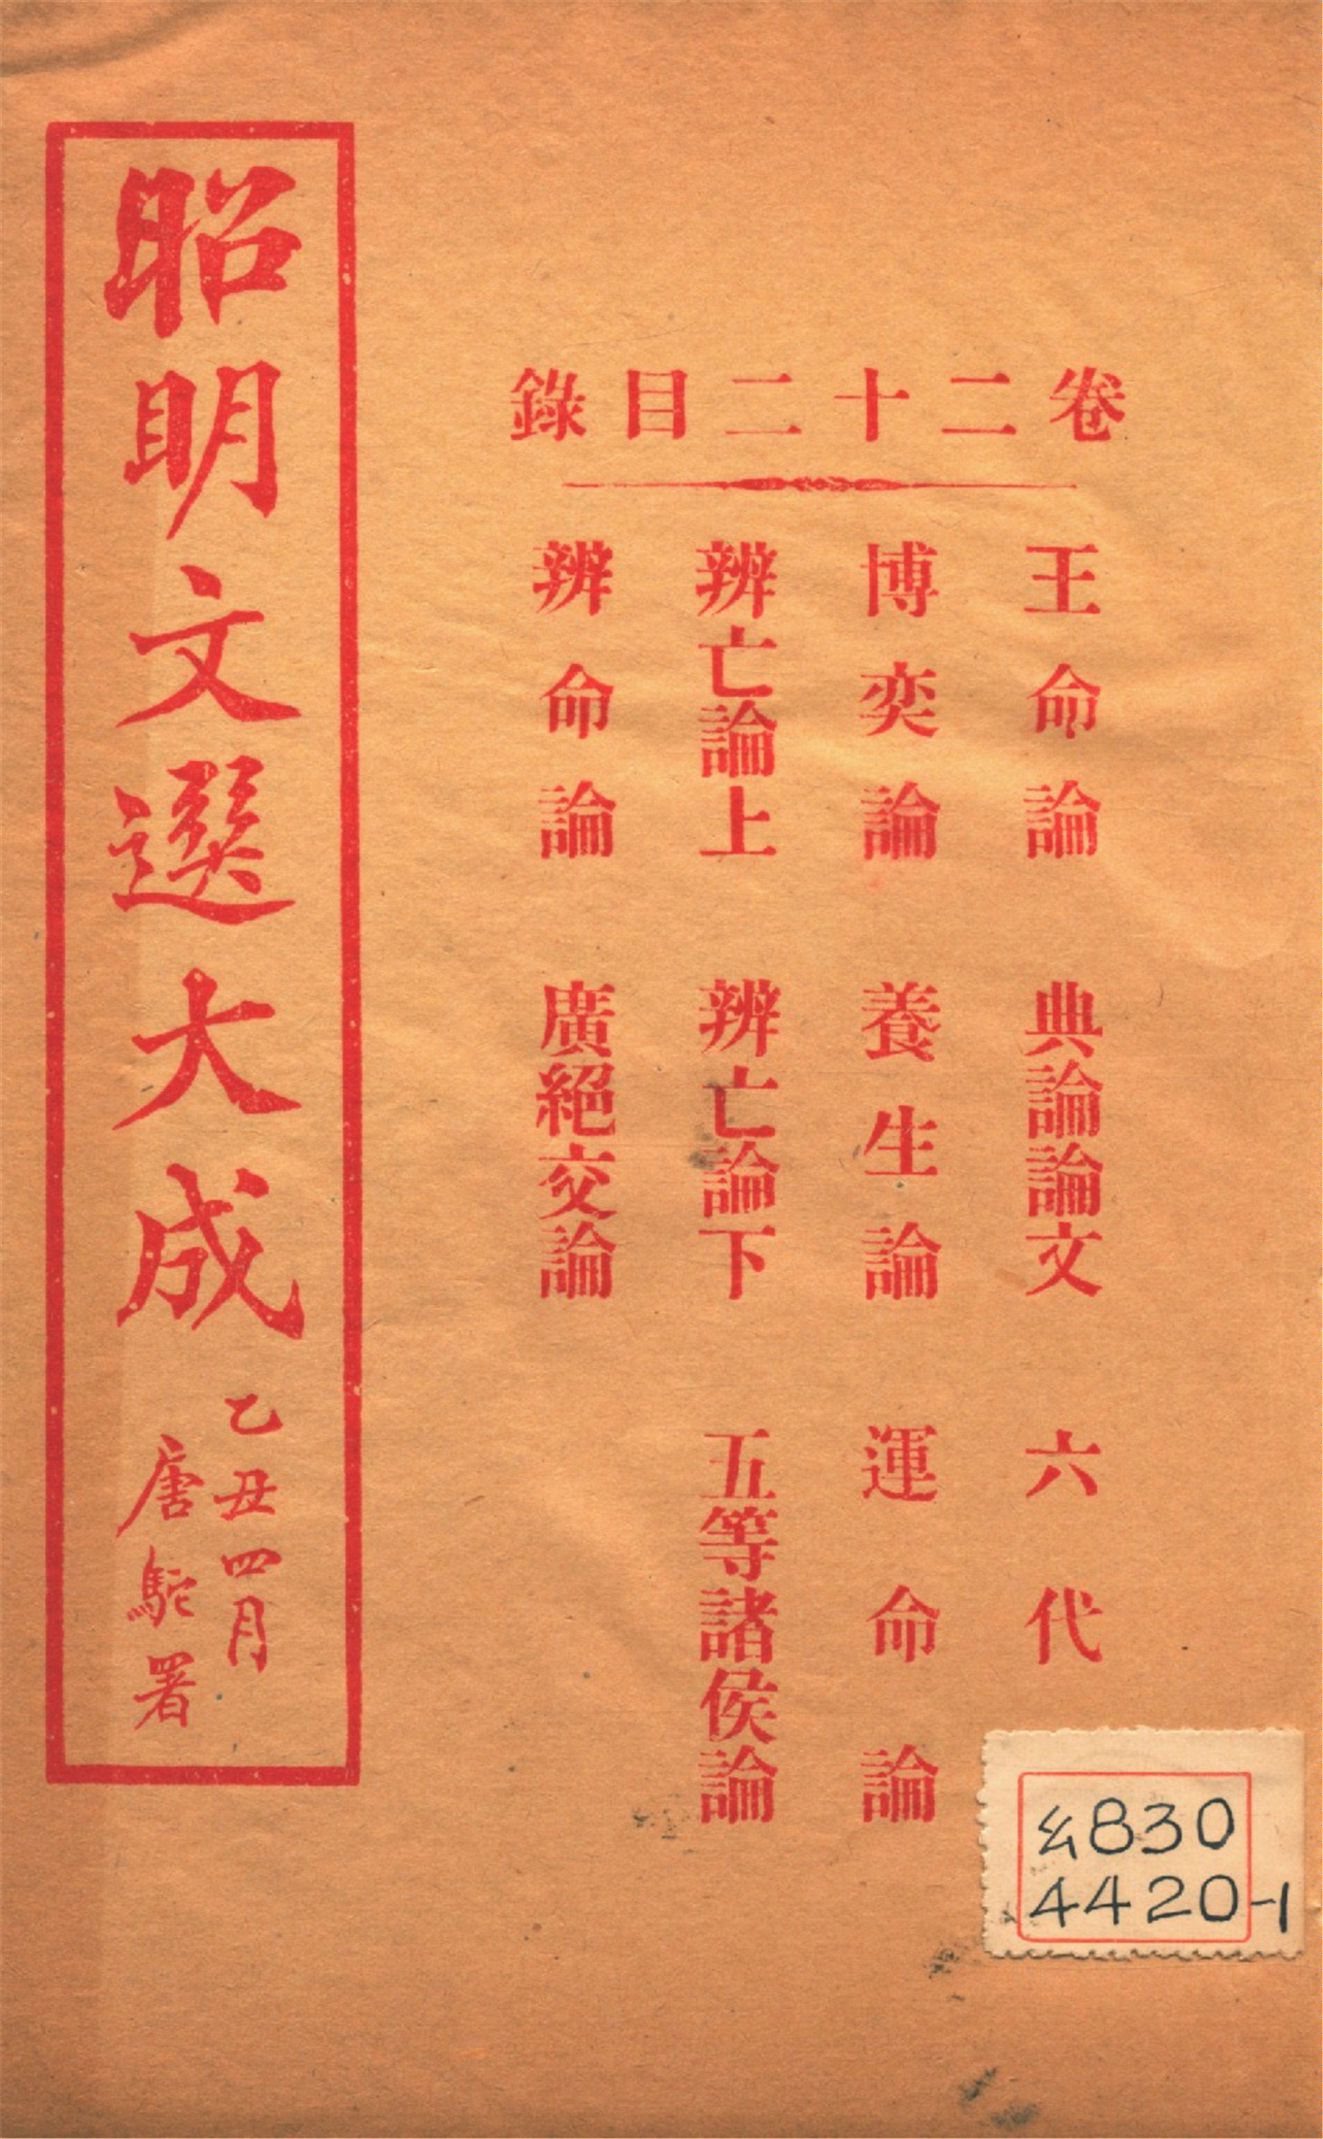 卷二十二目錄
王命論　典論論文　六代
博奕論　養生論　運命論
辨亡論上　辨亡論下　五等諸侯論
辨命論　廣絕交論
昭明文選大成
乙丑四月
唐駝署
830
4420-1